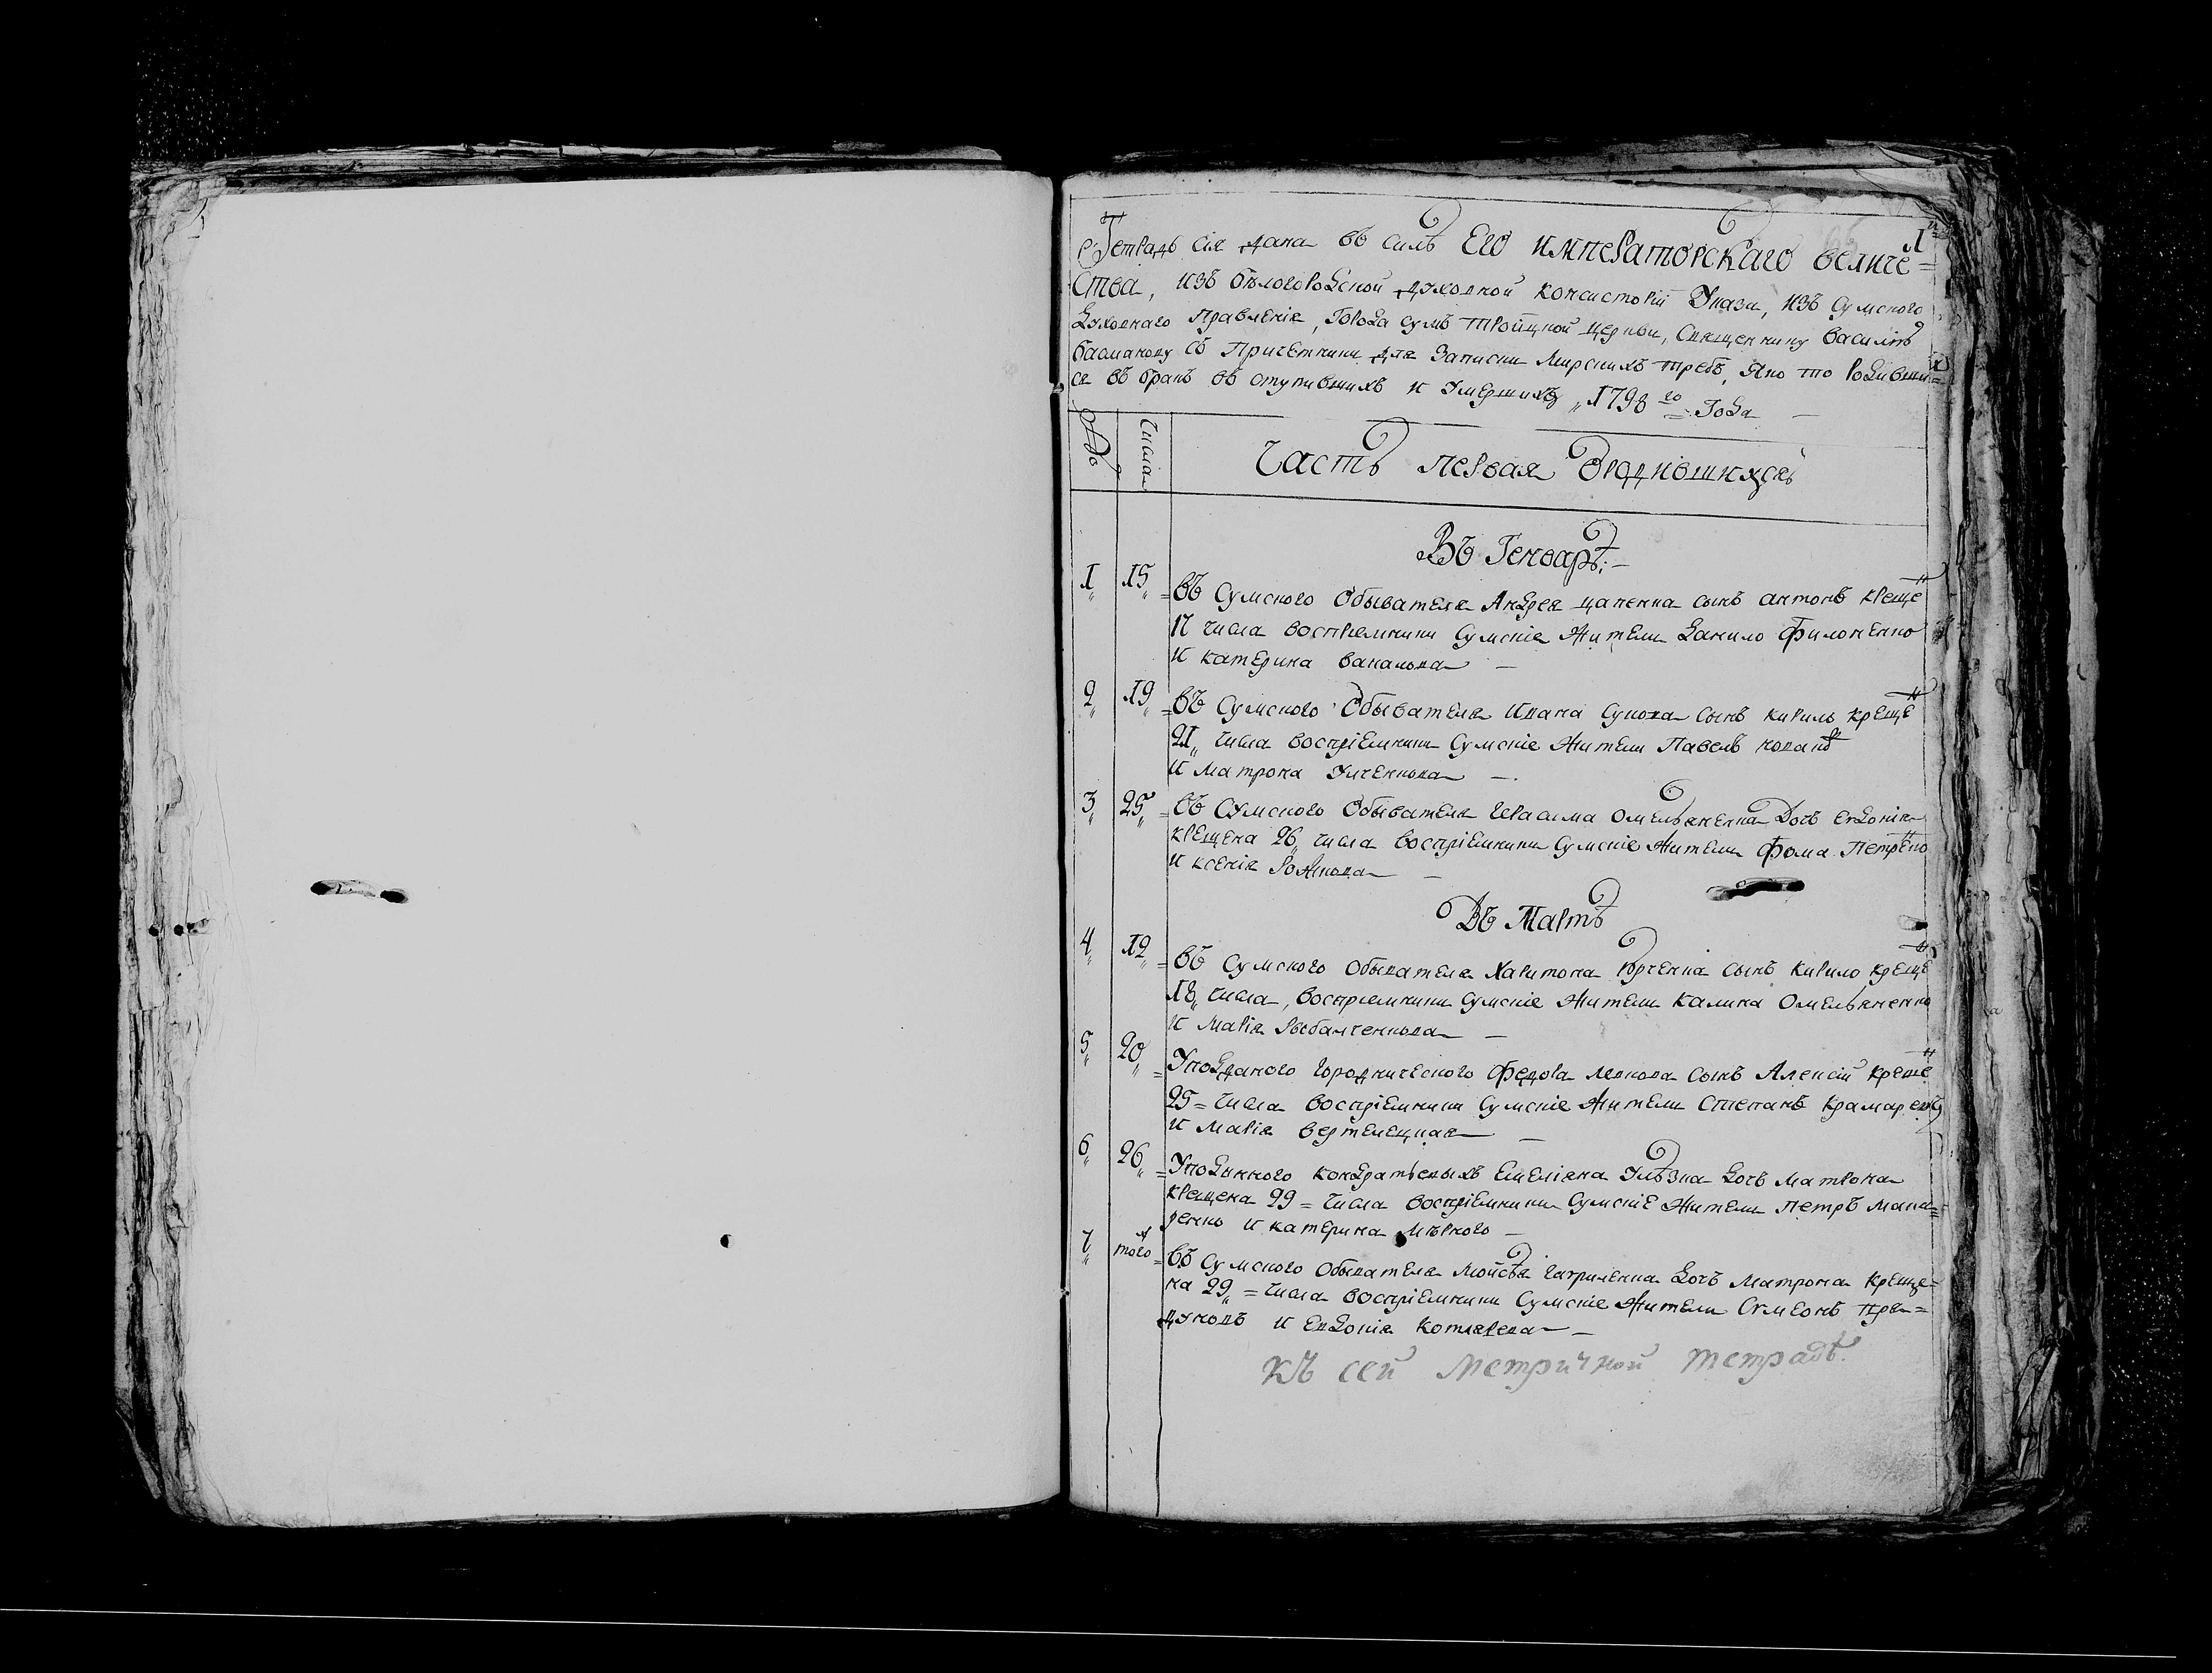 Тетрадь сія дана въ силѣ Его императорскаго величе=
ства, изъ бѣлогородской духовной консисторіи Указа, изъ Сумского
духовнаго правленія, города сумъ троицкой церкви, священнику василію
басманову съ причетники для записки мирскихъ требъ, яко то родивши=
ся въ бракъ въ ступившихъ и умершихъ „1798 го года
№ Числа
Часть первая ѡ родившихся
Въ Генварѣ
1 15 въ Сумского Обывателя Андрея цапенка сынъ антонъ креще
17 числа воспріемники Сумскіе жители данило филоненко
и катерина
2 19 въ Сумского Обывателя Ивана Сукова сынъ кирилъ креще
21 числа воспріемники Сумскіе жители Павелъ
и матрона
3 25 въ Сумского Обывателя Герасима омельяненка дочъ евдокія
крещена 26 числа воспріемники Сумскіе жители фома Петренко
и ксенія
Въ Мартѣ
4 12 въ Сумского Обывателя Харитона юрченка сынъ кирило креще
18 числа, воспріемники Сумскіе жители калина Омельяненко
и марія рыбалченкова
5 20 Уподданого городнического федора левкова сынъ Алексій креще
25 числа воспріемники Сумскіе жители степанъ крамаренко
и марія вертелецкая
6 26 Уподанного кондратьевыхъ емеліана дочъ матрона
крещена 29 числа воспріемники Сумскіе жители петръ мака=
ренко и катерина
7 того въ Сумского обывателя мойсея гавриленка дочъ матрона креще=
на 29 числа воспріемники Сумскіе жители Симеонъ
и евдокія котлярева
къ сей метричной тетрадѣ.